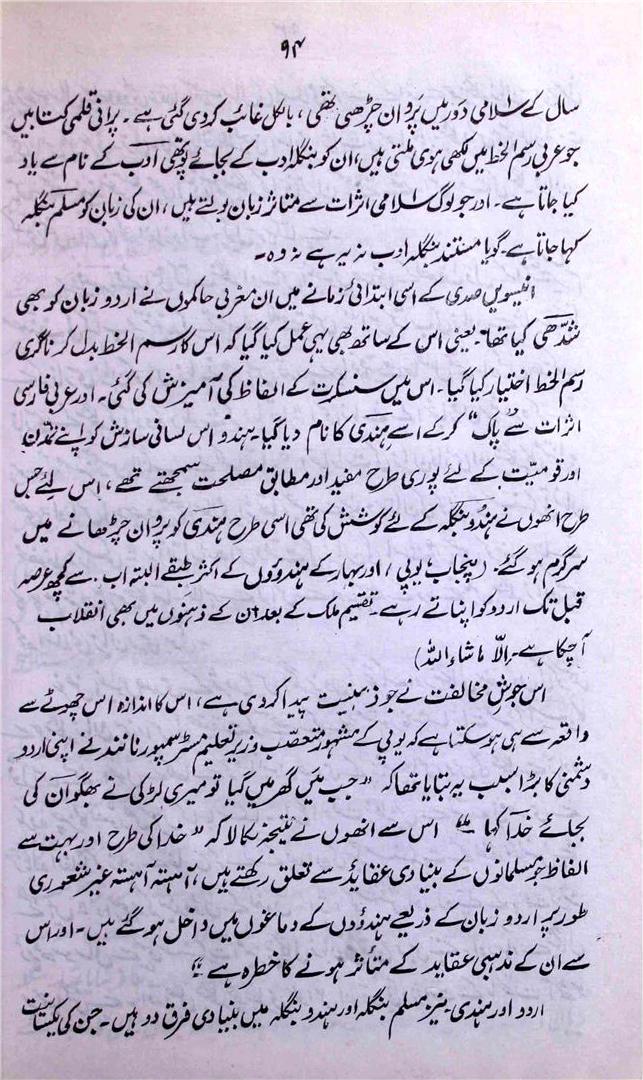 ۹۴
سال کے اسلامی دور میں پروان چڑھی تھی، بالکل غائب کردی گئی ہے۔ پرانی قلمی کتابیں
جو عربی رسم الخط میں لکھی ہوی ملتی ہیں، ان کو بنگلہ ادب کے بجائے پوتھی ادب کے نام سے یاد
کیا جاتا ہے۔ اور جو لوگ اسلامی اثرات سے متاثر زبان بولتے ہیں، ان کی زبان کو مسلم بنگلہ
کہا جاتا ہے۔ گویا مستند بنگلہ ادب نہ یہ ہے نہ وہ۔
انیسویں صدی کے اسی ابتدائی زمانے میں ان مغربی حاکموں نے اردو زبان کو بھی
شدھی کیا تھا۔ یعنی اس کے ساتھ بھی یہی عمل کیا گیا کہ اس کا رسم الخط بدل کر ناگری
رسم الخط اختیار کیا گیا۔ اس میں سنسکرت کے الفاظ کی آمیزش کی گئی۔ اور عربی فارسی
اثرات سے "پاک" کرکے اسے ہندی کا نام دیا گیا۔ ہندو اس لسانی سازش کو اپنے تمدن
اور قومیت کے لئے پوری طرح مفید اور مطابق مصلحت سمجھتے تھے، اس لئے جس
طرح انھوں نے ہندو بنگلہ کے لئے کوشش کی تھی اسی طرح ہندی کو پروان چڑھانے میں
سرگرم ہو گئے۔ (پنجاب، یوپی، اور بہار کے ہندوؤں کے اکثر طبقے البتہ اب سے کچھ عرصہ
قبل تک اردو کو اپناتے رہے۔ تقسیم ملک کے بعد ان کے ذہنوں میں بھی انقلاب
آچکا ہے۔ إلّا ماشاء اللہ)
اس جوشِ مخالفت نے جو ذہنیت پیدا کردی ہے، اس کا اندازہ اس چھوٹے سے
واقعہ سے ہی ہوسکتا ہے کہ یوپی کے مشہور متعصب وزیر تعلیم مسٹر سمپورنانند نے اپنی اردو
دشمنی کا بڑا سبب یہ بتایا تھا کہ "جب میں گھر میں گیا تو میری لڑکی نے بھگوان کی
بجائے خدا کہا" اس سے انھوں نے نتیجہ نکالا کہ "خدا کی طرح اور بہت سے
الفاظ جو مسلمانوں کے بنیادی عقاید سے تعلق رکھتے ہیں، آہستہ آہستہ غیر شعوری
طور پر اردو زبان کے ذریعے ہندوؤں کے دماغوں میں داخل ہو گئے ہیں۔ اور اس
سے ان کے مذہبی عقاید کے متاثر ہونے کا خطرہ ہے"
اردو اور ہندی نیز مسلم بنگلہ اور ہندو بنگلہ میں بنیادی فرق دو ہیں۔ جن کی یکسانیت